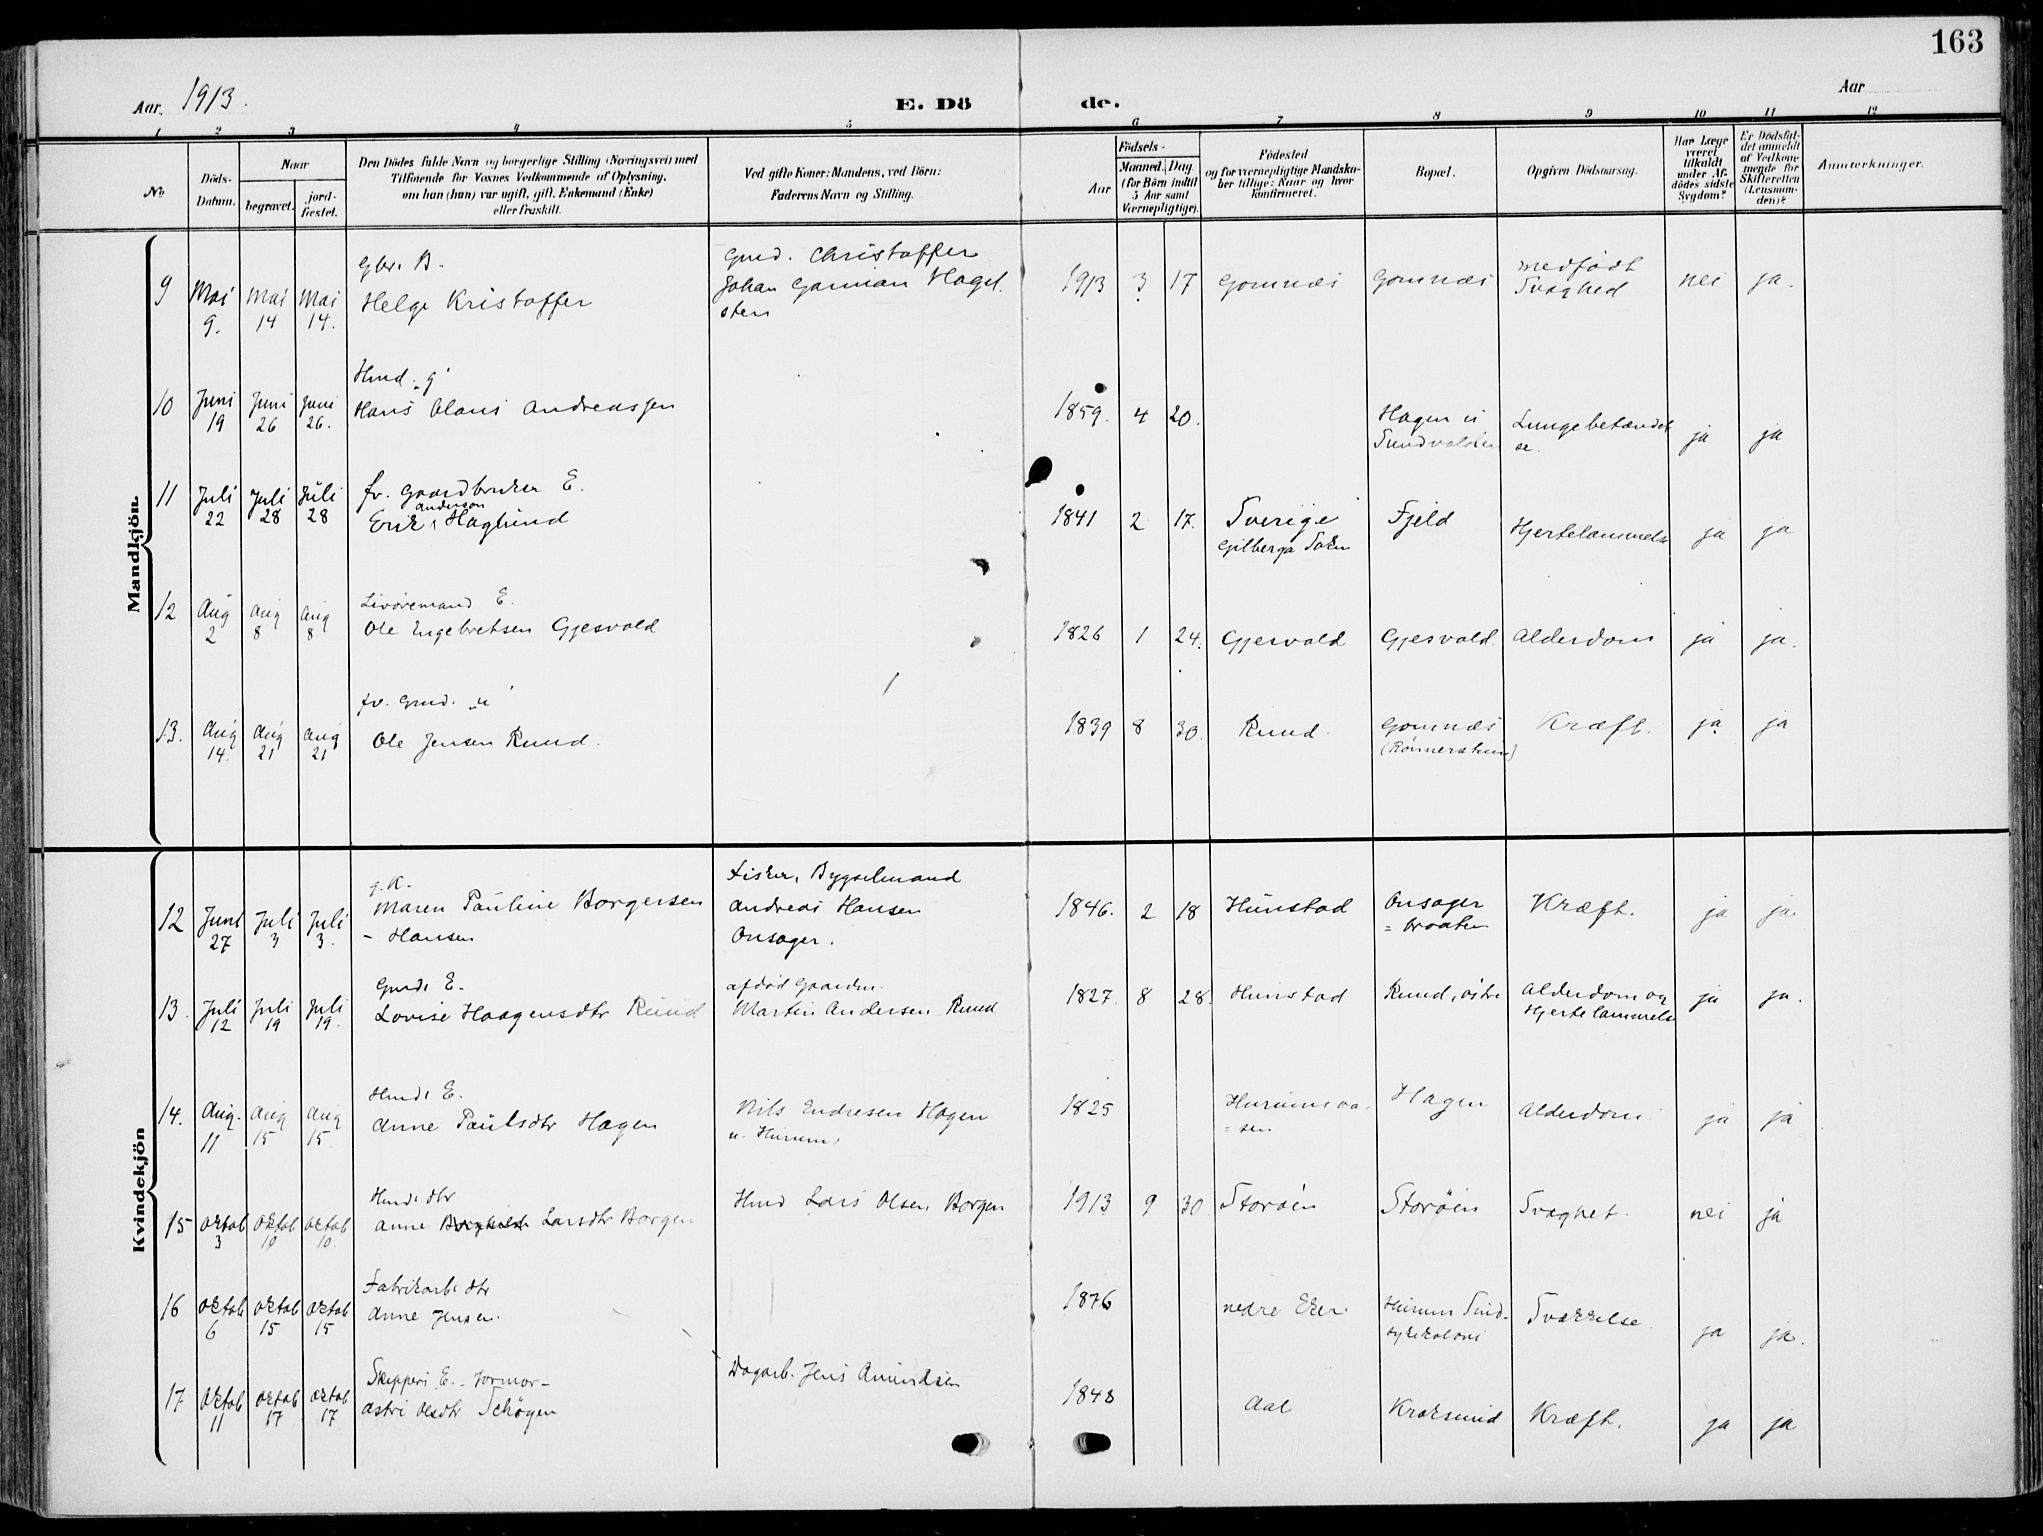 163
Aar 1913.
E. Dö
de.
Aar
1 2 3 4 5 6 7 8 9 10 11 12
No
Döds-
Datum.
Naar
begravet.
jord-
fæstet.
Den Dödes fulde Navn og borgerlige Stilling (Næringsvei) med
Tilføiende for Voxnes Vedkommende af Oplysning,
om han (hun) var ugift, gift, Enkemand (Enke)
eller fraskilt.
Ved gifte Koner: Mandens, ved Börn:
Faderens Navn og Stilling.
Födsels-
Aar
Maaned.
Dag.
(for Börn indtil
5 Aar samt
Værnepligtige).
Födested
og for værnepligtige Mandska-
ber tillige: Naar og hvor
konfirmeret.
Bopæl.
Opgiven Dödsaarsag.
Har Læge
været
tilkaldt
under Af-
dödes sidste
Sygdom?
Er Dödsfal-
det anmeldt
af Vedkom-
mende for
Skifteretten
(Lensman-
den)?
Anmærkninger.
Mandkjön.
Gbr. B.
Gmd. Christoffer
9 Mai Mai Mai Helge Kristoffer Johan Garman Hagel. 1913 3 17 Gomnæs Gomnæs medfødt nei ja.
9. 14 14. sten Svaghed
Hmd. g
10 Juni Juni Juni Hans Olaus Andreassen 1859. 4 20. Hagen i Lungebetændel ja ja
19 26 26. Sundvolden se.
fv. Gaardbruker E.
11 Juli Juli Juli Anderson 1841 2 17. Sverige Fjeld Hjertelammelse ja ja
22 28 28 Erik Haglund Gilberga Sokn
12 Aug Aug Aug Livøremand E.
2 8 8 Ole Engebretsen Gjesvold 1826 1 24. Gjesvold Gjesvold. Alderdom ja ja.
fv. Gmd. u
13. Aug Aug Aug Ole Jensen Ruud. 1839 8 30. Ruud. Gomnæs Kræft. ja ja
14. 21 21
Kvindekjön
g. K. Fisker, Bygselmand
12 Juni Juli Juli Maren Pauline Borgersen Andreas Hansen 1846. 2 18 Hunstad Onsager Kræft. ja ja
27 3 3. - Hansen Onsager. = braaten
Gmds E. afdød Gaardm.
13. Juli Juli Juli Lovise Haagensdtr Ruud Martin Andersen Ruud 1827. 8 28. Hunstad Ruud, østre Alderdom og ja ja.
12 19 19. Hjertelammelse
Hmds E.
14. Aug. Aug Aug Anne Paulsdtr Hagen Nils Endresen Hagen 1825 Hurumsaa- Hagen Alderdom. ja ja
11 15 15. u. Hurum, = sen
Hmds dtr
15 Oktob Oktob Oktob Anne Larsdtr Borgen Hmd Lars Olsen Borgen 1913 9 30 Storøen Storøen Svaghet. nei ja
3 10 10.
Fabrikarb. dtr
16 Oktob Oktob Oktob Anne Jensen. 1876 nedre Eker. Hurum Sind- Svækkelse. ja ja.
6 15 15 sykekoloni
Skippers E. Jormor- Dagarb. Jens Amundsen
17 Oktob Oktob Oktob Astri Olsdtr Schøgen 1848 Aal Kroksund Kræft. ja ja
11 17 17